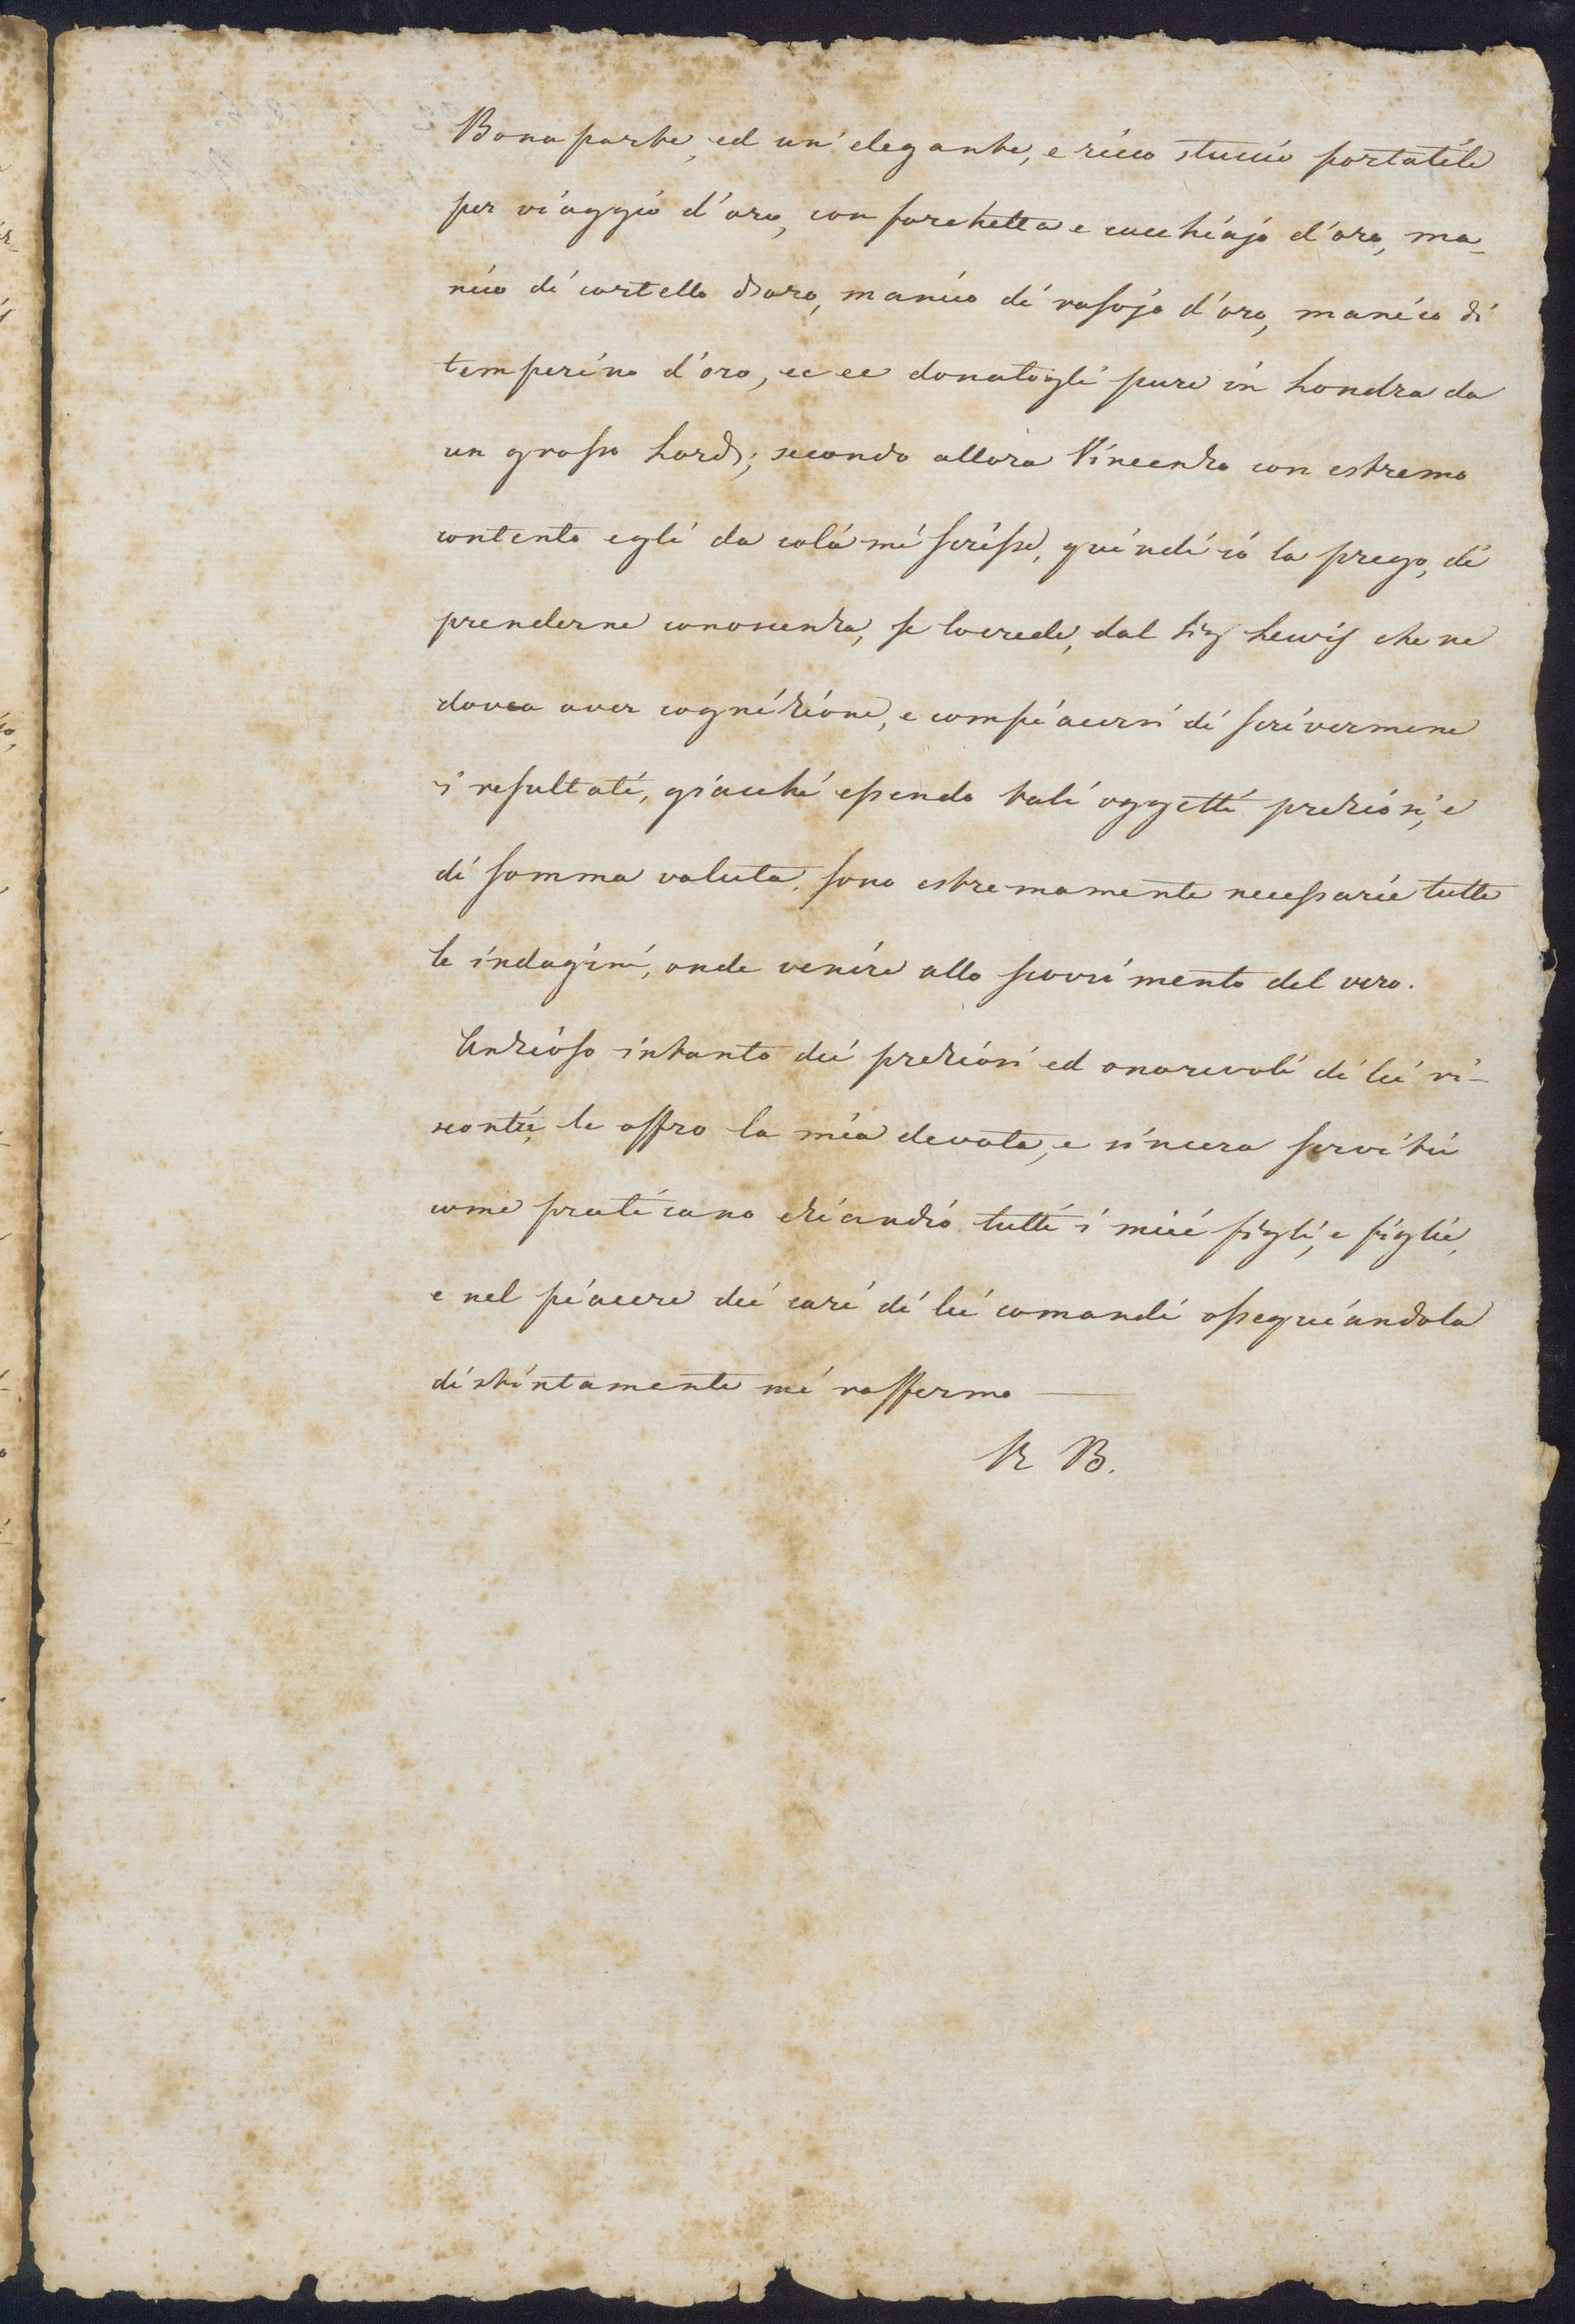 Bonaparte, ed un' elegante, e ricco stuccio portatile
per viaggio d'oro, con forchetta e cucchiajo d'oro, ma-
nico di cortello d'oro, manico di rasojo d'oro, manico di
temperino d'oro, ec ec donatogli pure in Londra da
un grosso Lord; secondo allora Vincenzo con estremo
contento egli da colà mi scrisse, quindi io la prego, di
prenderne conoscenza, se lo crede, dal Sig Lewis che ne
dovea aver cognizione, e compiacersi di scrivermene
i resultati, giacchè essendo tali oggetti preziosi, e
di somma valuta, sono estremamente necessarie tutte
le indagini, onde venire allo scovrimento del vero.
Anzioso intanto dei preziosi ed onorevoli di lei ri-
scontri, le offro la mia devota, e sincera servitù
come praticano eziandio tutti i miei figli, e figlie,
e nel piacere dei cari di lei comandi ossequiandola
distintamente mi raffermo —
R B.